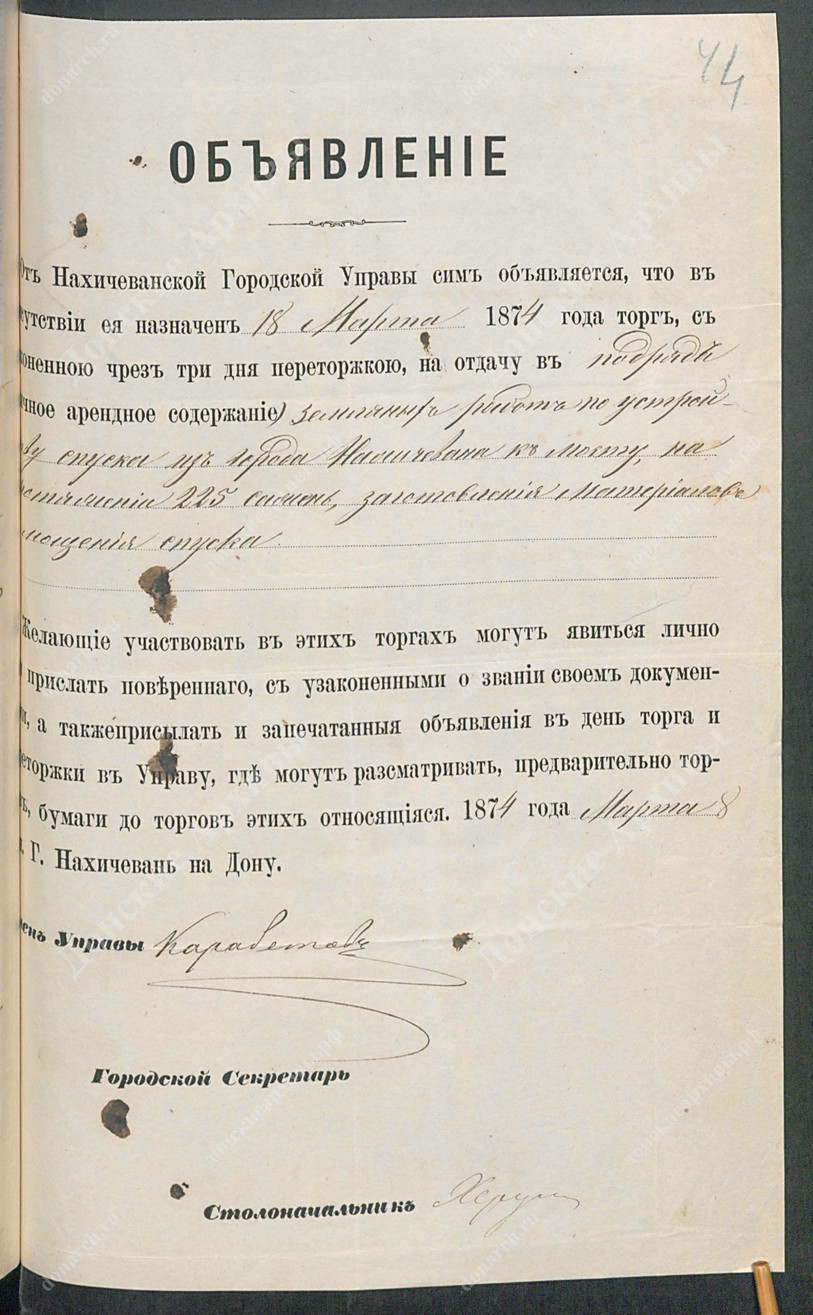 44
ОБЪЯВЛЕНІЕ
Отъ Нахичеванской Городской Управы симъ объявляется, что въ
утствіи ея назначенъ 18 Марта 1874 года торгъ, съ
оненною чрезъ три дня переторжкою, на отдачу въ подрядъ
чное арендное содержаніе) земляныхъ работъ по устрой-
ву спуска изъ города Нахичевана къ мосту, на
225 сажень, заготовленія матеріаловъ
мощенія спуска
Желающіе участвовать въ этихъ торгахъ могутъ явиться лично
прислать повѣреннаго, съ узаконенными о званіи своемъ докумен-
и, а также присылать и запечатанныя объявленія въ день торга и
еторжки въ Управу, гдѣ могутъ разсматривать, предварительно тор-
ъ, бумаги до торговъ этихъ относящіяся. 1874 года Марта 8
Г. Нахичевань на Дону.
енъ Управы Карабетовъ
Городской Секретарь
Столоначальникъ